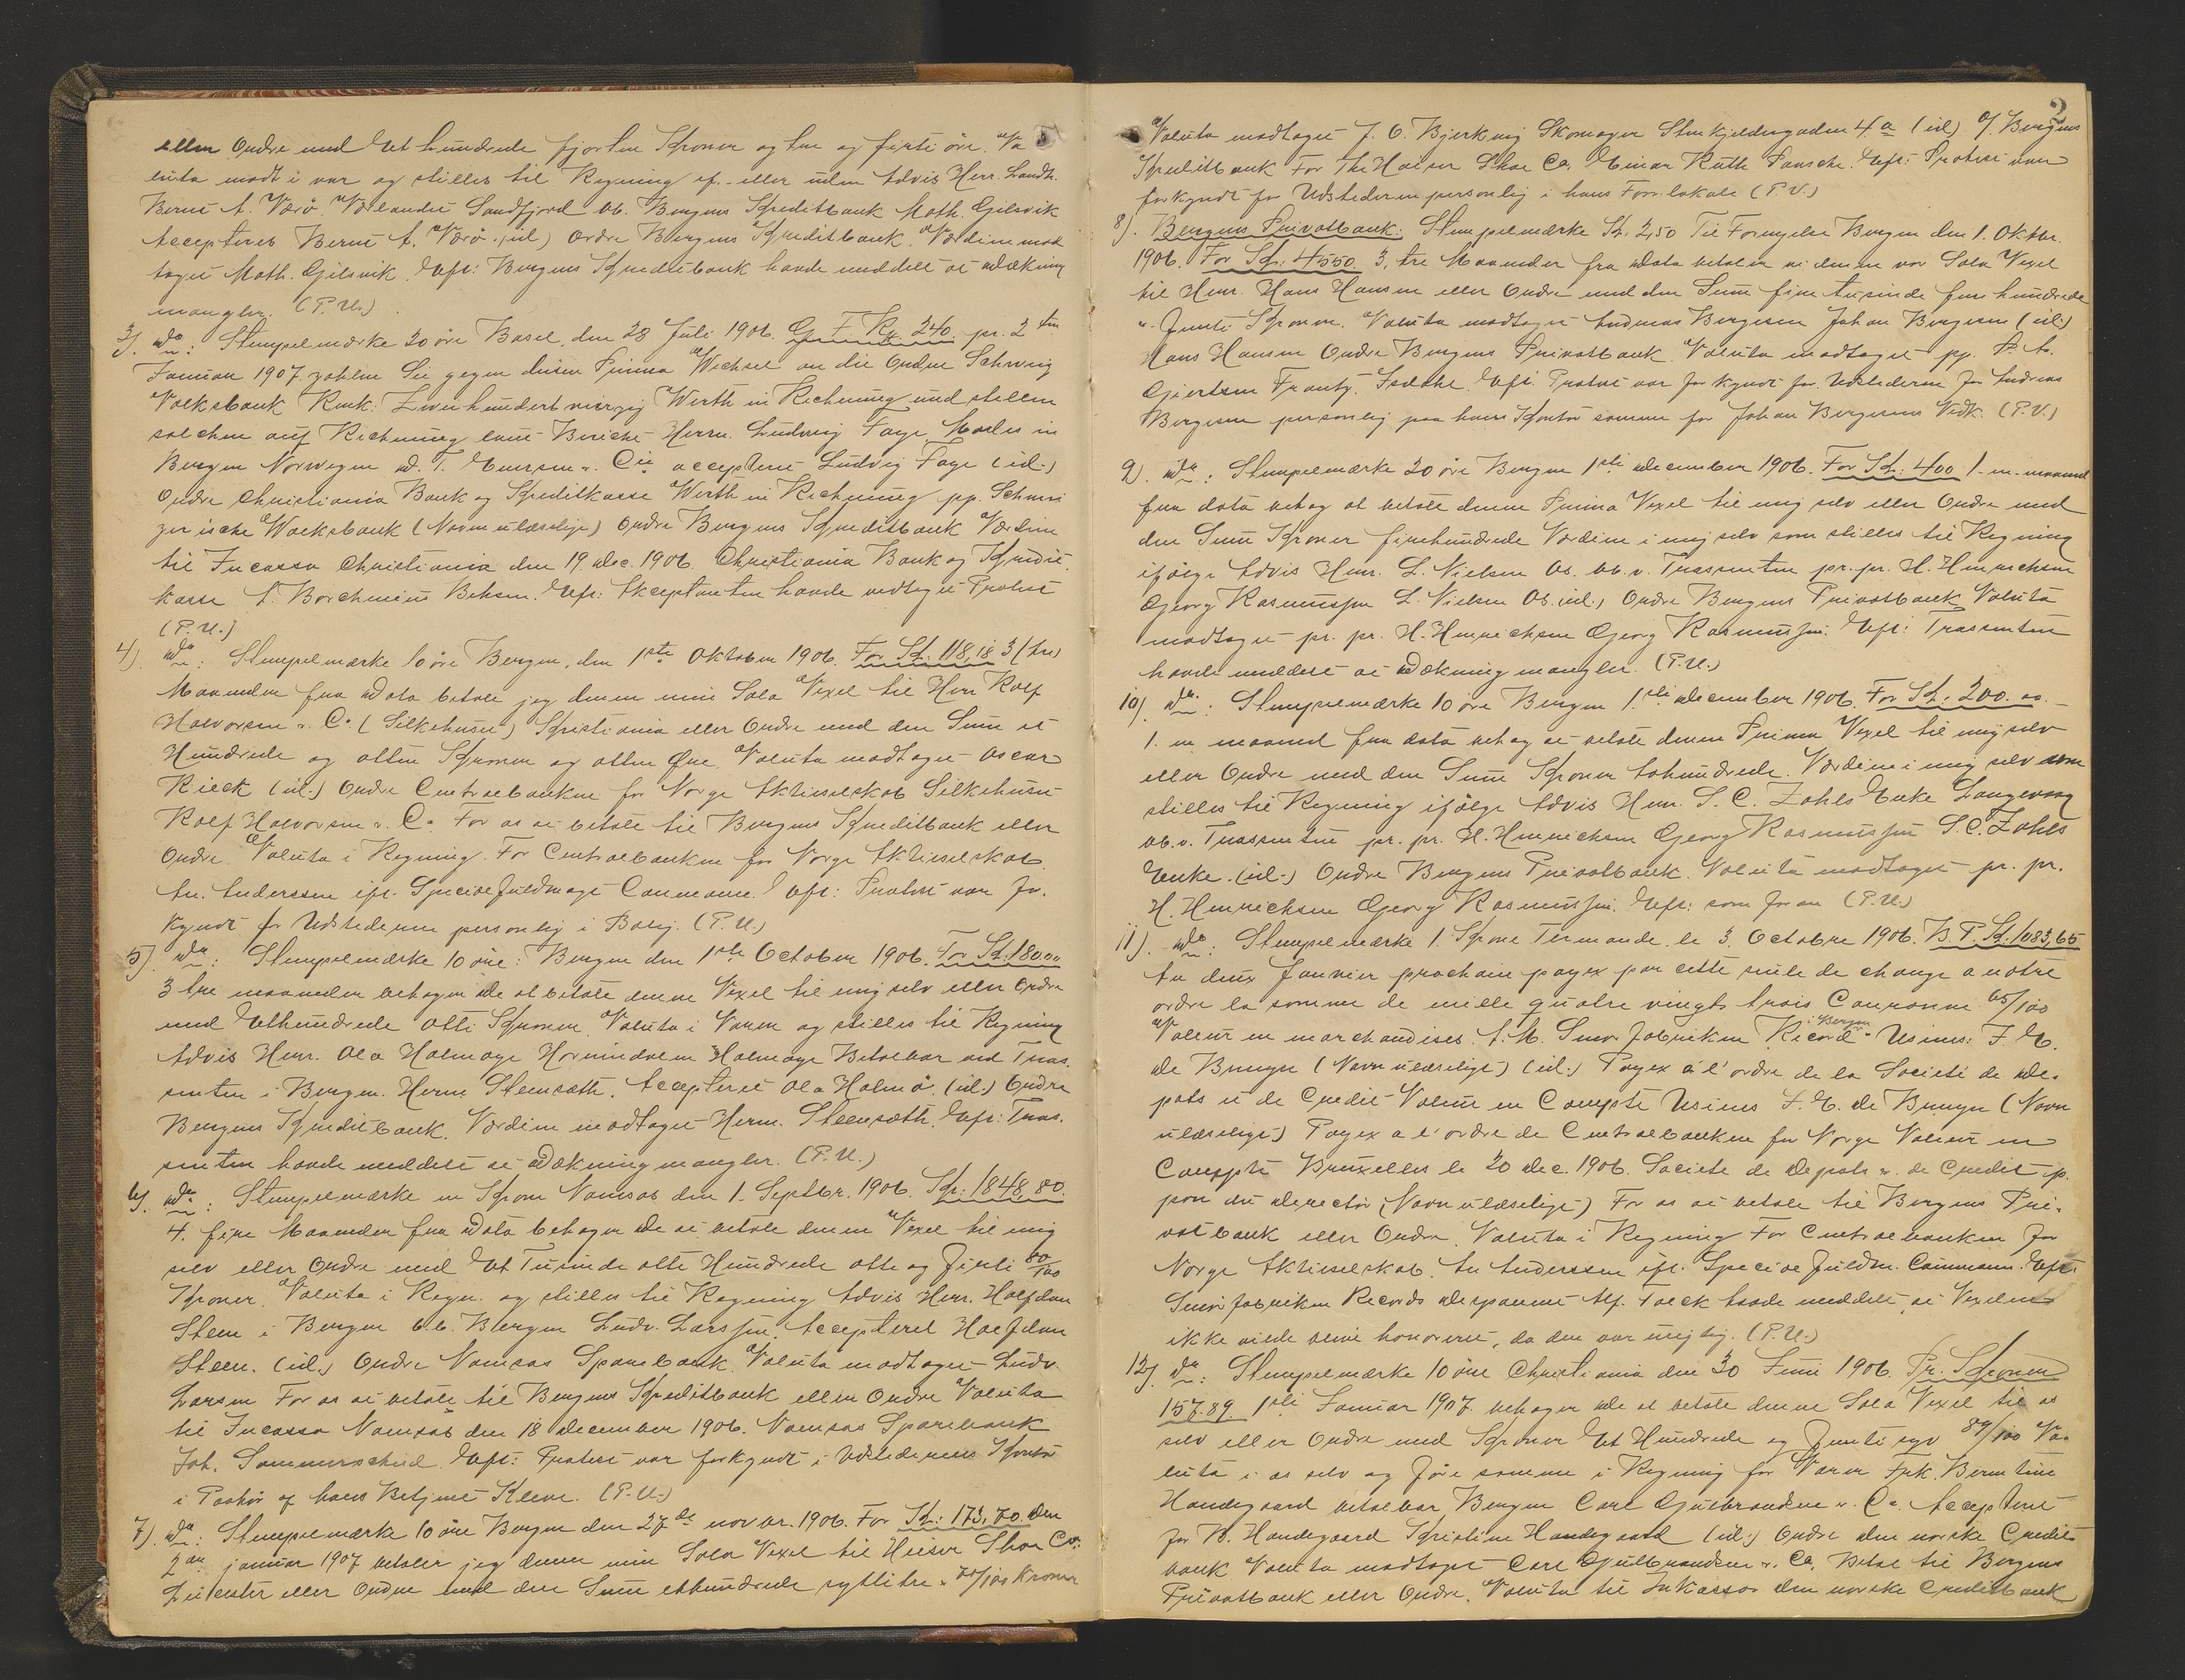 eller Ordre med Et hundrede fjorten Kroner og to og firti öre. Va
luta modt i var og stilles til Regning ef. eller uden Advis Herr. Landh.
Bernt A. Værö. Værlandet Sandfjord bb. Bergens Kreditbank Math. Gilsvik
Accepteres Bernt A. Værö. (ul) Ordre Bergens Kreditbank. Værdien mod
taget Math. Gilsvik. Eft: Bergens Kreditbank havde meddelt at Dækning
mangler. (P.U.)
3). Do: Stempelmærke 20 öre Basel, den 28 Juli 1906. G. F. Kr. 240. pr. 2ten
Januar 1907 zahlen Sie gegen diesen Prima Wechsel an die Ordre Schweiz
Volksbank Kronk: Zweihundert vierzig Werth in Rechnung und stellen
solchen auf Rechnung laut Bericht Herrn. Ludwig Faye Maler in
Bergen Norwegen D. T. Emersen & Cie acceptirt Ludvig Faye (ul.)
Ordre Christiania Bank og Kreditkasse Werth in Rechnung pp. Schwei
zerische Volksbank (Navn ulæselige) Ordre Bergens Kreditbank Værdien
til Incasso Christiania den 19. Dec. 1906. Christiania Bank og Kredit.
kasse A. Borchenius Behsen. Eft: Akceptanten havde vedtaget Protest
(P.U.)
4). Do: Stempelmærke 10 öre Bergen, den 1ste Oktober 1906. For Kr. 118,18 3 (tre)
Maaneder fra Dato betaler jeg denne min Sola Vexel til Herr Rolf
Halvorsen & Co. (Silkehuset) Kristiania eller Ordre med den Sum et
Hundrede og atten Kroner og atten Øre. Valuta modtaget Oscar
Rieck (ul.) Ordre Centralbanken for Norge Aktieselskab Silkehuset
Rolf Halvorsen & Co. For os at betale til Bergens Kreditbank eller
Ordre. Valuta i Regning. For Centralbanken for Norge Aktieselskab
An. Anderssen ifl. Specialfuldmagt Cammann. Eft: Protest var for.
kyndt for Udstederen personlig i Bolig. (P.U.)
5). Do: Stempelmærke 10 öre: Bergen den 1ste October 1906. For Kr. 180,00
3 tre maaneder behager De at betale denne Vexel til mig selv eller Ordre
med Ethundrede otti Kroner. Valuta i Varer og stilles til Regning
Advis Herr. Ola Holmøye Hornindalen Holmøye Betalbar ved Tras.
senten i Bergen. Herm. Steensæth. Accepteret Ola Holmö. (ul.) Ordre
Bergens Kreditbank. Værdien modtaget Herm. Steensæth. Eft: Tras.
senten havde meddelt at Dækning mangler. (P.U.)
6). Do: Stempelmærke en Krone Namsos den 1. Septbr. 1906. Kr: 1848,80.
4. fire Maaneder fra Dato behager De at betale denne Vexel til mig
selv eller Ordre med Et Tusinde otte Hundrede otte og Firti 80/100
Kroner. Valuta i Regn. og stilles til Regning Advis Herr. Halfdan
Steen i Bergen b.b. Bergen Ludv. Larssen. Accepteret Halfdan
Steen. (ul.) Ordre Namsos Sparebank. Valuta modtaget Ludv.
Larsen For os at betale til Bergens Kreditbank eller Ordre Valuta
til Incasso Namsos den 18 December 1906. Namsos Sparebank
Joh. Sommerschild. Eft: Protest var forkyndt i Udstederens Kontor
i Paahør af hans Betjent Kleve. (P.U.)
7). Do: Stempelmærke 10 öre Bergen den 27de novbr. 1906. For Kr: 173,70. den
2den januar 1907 betaler jeg denne min Sola Vexel til Heiser Shoe Co:
Leicester eller Ordre med den Sum ethundrede syttitre & 70/100 Kroner
2
Valuta modtaget J. O. Bjerknig Skomager Strandkjeldergaden 4a (ul) O/ Bergens
Kreditbank For The Haeser Shoe Co. Einar Ruth Pansche. Eft: Protest var
forkyndt for Udstederen personlig i hans Forr. lokale (P.U.)
8). Bergens Privatbank. Stempelmærke Kr. 2,50 Til Fornyelse Bergen den 1. Oktbr.
1906. For Kr: 4550. 3, tre Maaneder fra Dato betaler vi denne vor Sola Vexel
til Herr. Hans Hansen eller Ordre med den Sum fire tusinde fem hundrede
& femti Kroner. Valuta modtaget Andreas Bergesen Johan Bergesen (ul.)
Hans Hansen Ordre Bergens Privatbank Valuta modtaget pp. P. A.
Gjertsen Frantz. Isdahl. Eft. Protest var forkyndt for Udstederne for Andreas
Bergesen personlig paa hans Kontor samme for Johan Bergesens Vedk. (P.U.)
9). Do: Stempelmærke 20 öre Bergen 1ste December 1906. For Kr: 400 1- en- maaned
fra dato behag at betale denne Prima Vexel til mig selv eller Ordre med
den Sum Kroner firehundrede Værdien i mig selv som stilles til Regning
ifölge Advis Herr. L. Nielsen Os. bb. v. Trassenten pr. pr. H. Hinrichsen
Georg Rasmussen L. Nielsen Os. (ul.) Ordre Bergens Privatbank Valuta
modtaget pr. pr. H. Hinrichsen Georg Rasmussen. Eft: Trassenten
havde meddelt at Dækning mangler. (P.U.)
10). Do: Stempelmærke 10 öre Bergen 1ste December 1906. For Kr: 200.00.
1. en maaned fra dato behag at betale denne Prima Vexel til mig selv
eller Ordre med den Sum Kroner tohundrede. Værdien i mig selv som
stilles til Regning ifölge Advis Herr. S. C. Zahls Enke Langevaag
bb. v. Trassenten pr. pr. H. Hinrichsen Georg Rasmussen S. C. Zahls
Enke. (ul.) Ordre Bergens Privatbank. Valuta modtaget pr. pr.
H. Hinrichsen Georg Rasmussen. Eft: som foran (P.U.)
11). Do: Stempelmærke 1. Krone Termonde, le 3. Octobre 1906. B. P. Kr. 1083,65
Au deux Janvier prochain payex par cette seule de change a notre
ordre la somme de mille quatre vingts trois Couronne 65/100
Valeur en marchandises. A. M. Smørfabriken Record i Bergen Usines: F. E.
de Bruyn (Navn ulæselige) (ul.) Payex à l'ordre de la Societé de De-
pots et de Credit Valeur en Compte Usines F. E. de Bruyn (Navn
ulæselige) Payex a l'ordre de Centralbanken for Norge Valeur en
Compte Bruxelles le 20 Dec. 1906. Societe de Depots & de Credit p.
pon du Director (Navn ulæselige) For os at betale til Bergens Pri-
vatbank eller Ordre. Valuta i Regning For Centralbanken for
Norge Aktieselskab. An Anderssen ifl. Specialfuldm. Cammann. Eft:
Smørfabriken Records Disponent Alf. Falck havde meddelt, at Vexelen
ikke vilde blive honoreret, da den var urigtig. (P.U.)
12). Do: Stempelmærke 10 öre Christiania den 30 Juni 1906. Pr. Kroner
157.89. 1ste Januar 1907. behager De at betale denne Sola Vexel til os
selv eller Ordre med Kroner Et Hundrede og Femti syv 89/100 Va-
luta i os selv og före samme i Regning for Varer Frk. Berntine
Handegaard betalbar Bergen Carl Gulbrandsen & Co. Accepteret
for B. Handegaard Kristine Handegaard (ul.) Ordre Den norske Credit-
bank Valuta modtaget Carl Gulbrandsen & Co. Betal til Bergens
Privatbank eller Ordre. Valuta til Inkasso Den norske Creditbank